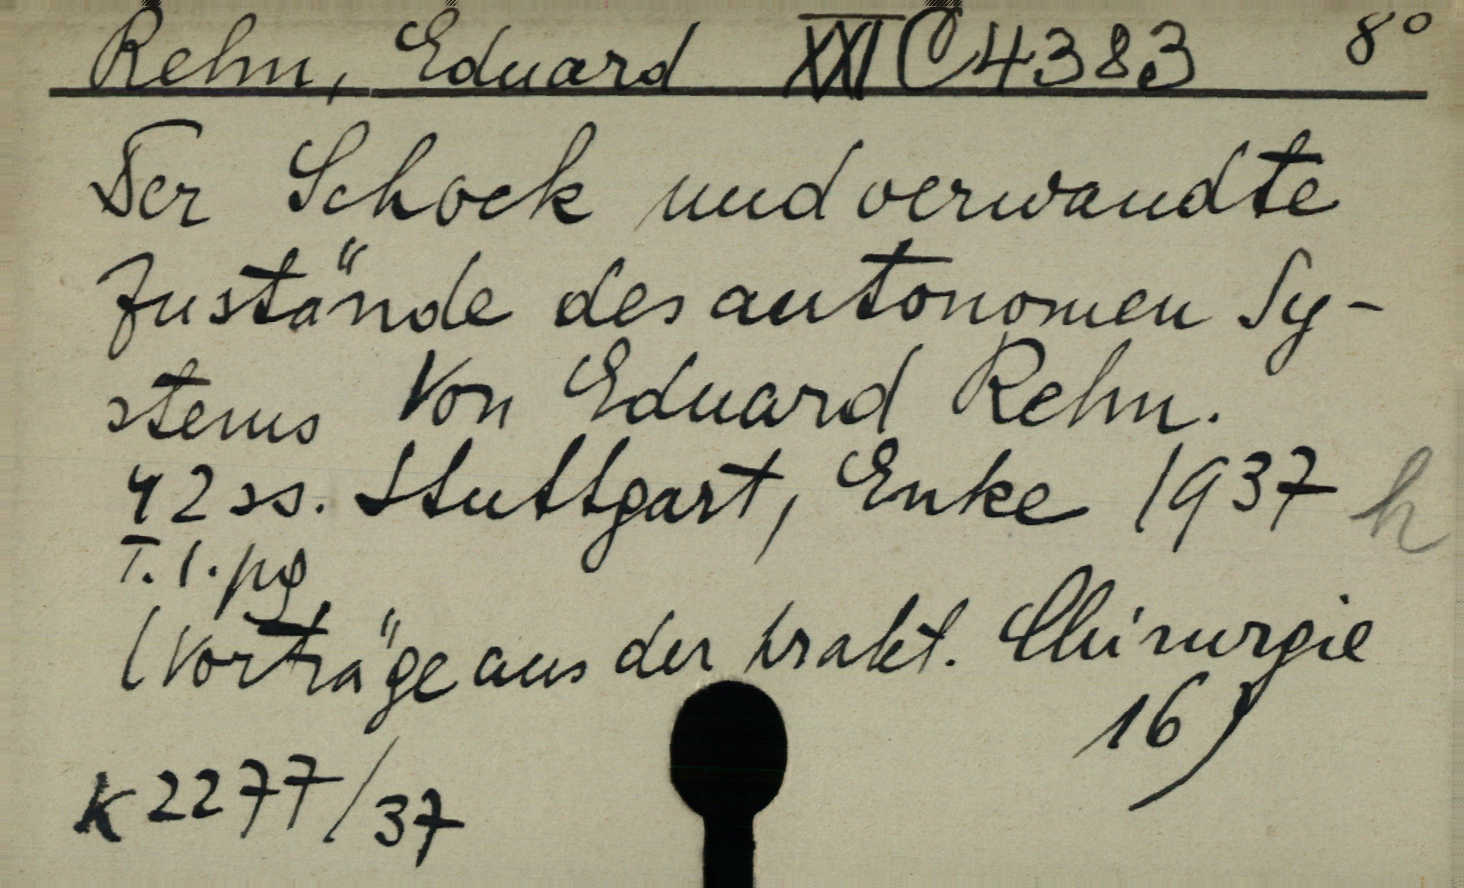 Rehn, Eduard XXI C 4383 8°
Der Schock und verwandte
Zustände des autonomen Sy-
stems Von Eduard Rehn.
42 ss. Stuttgart, Enke 1937 h
T. 1. pg
(Vorträge aus der prakt. Chirurgie
16)
K 2277/37